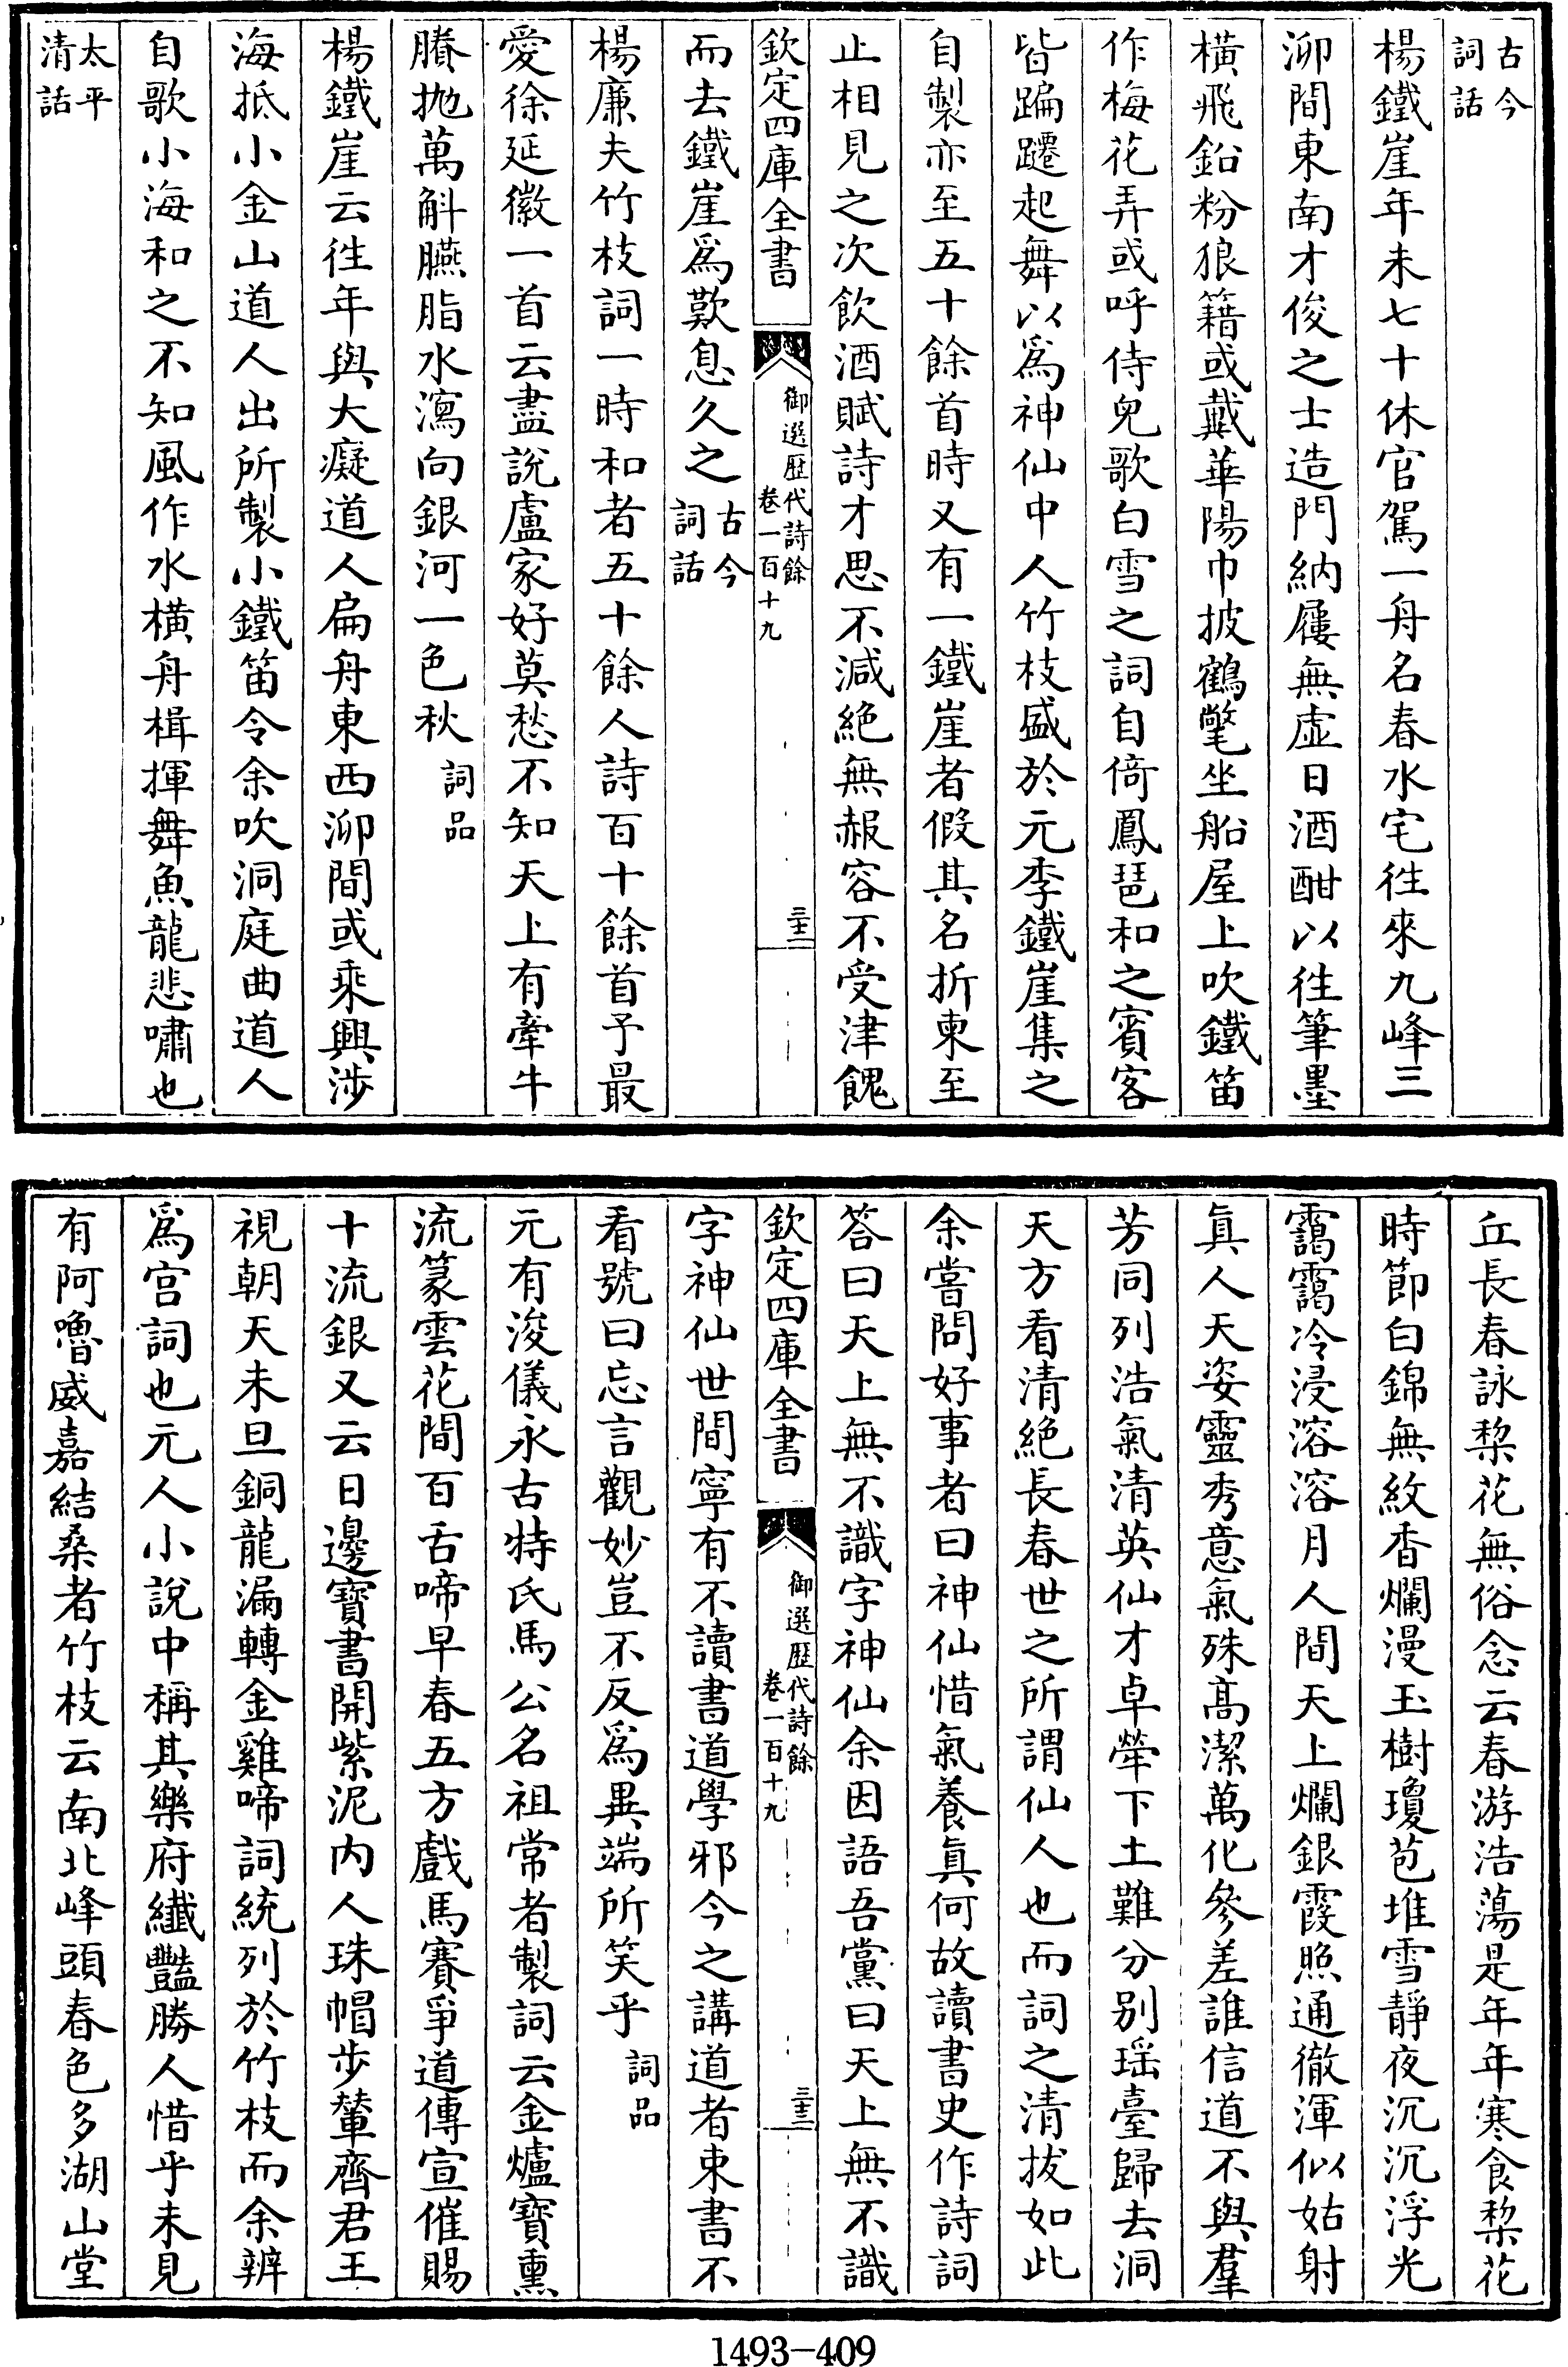 古今
詞話
楊鐵崖年未七十休官駕一舟名春水宅徃來九峰三
泖間東南才俊之士造門納屨無虚日酒酣以徃筆墨
横飛鉛粉狼籍或戴華陽巾披鶴氅坐船屋上吹鐵笛
作梅花弄或呼侍兒歌白雪之詞自倚鳳琶和之賓客
皆蹁躚起舞以為神仙中人竹枝盛於元季鐵崖集之
自製亦至五十餘首時又有一鐵崖者假其名折柬至
止相見之次飲酒賦詩才思不減絶無赧容不受津餽
欽定四庫全書
御選歴代詩餘
卷一百十九
三十二
而去鐵崖為歎息久之
古今
詞話
楊廉夫竹枝詞一時和者五十餘人詩百十餘首予最
愛徐延徽一首云盡說盧家好莫愁不知天上有牽牛
賸抛萬斛臙脂水瀉向銀河一色秋
詞品
楊鐵崖云徃年與大癡道人扁舟東西泖間或乘興渉
海抵小金山道人出所製小鐵笛令余吹洞庭曲道人
自歌小海和之不知風作水横舟楫揮舞魚龍悲嘯也
太平
清話
丘長春詠棃花無俗念云春游浩蕩是年年寒食棃花
時節白錦無紋香爛漫玉樹瓊苞堆雪靜夜沉沉浮光
靄靄冷浸溶溶月人間天上爛銀霞照通徹渾似姑射
真人天姿靈秀意氣殊髙潔萬化參差誰信道不與羣
芳同列浩氣清英仙才卓犖下土難分别瑶臺歸去洞
天方看清絶長春世之所謂仙人也而詞之清拔如此
余嘗問好事者曰神仙惜氣養真何故讀書史作詩詞
答曰天上無不識字神仙余因語吾黨曰天上無不識
欽定四庫全書
御選歴代詩餘
卷一百十九
三十三
字神仙世間寧有不讀書道學邪今之講道者束書不
看號曰忘言觀妙豈不反為異端所笑乎
詞品
元有浚儀永古特氏馬公名祖常者製詞云金爐寳熏
流篆雲花間百舌啼早春五方戲馬賽爭道傳宣催賜
十流銀又云日邊寳書開紫泥内人珠帽步輦齊君王
視朝天未旦銅龍漏轉金雞啼詞統列於竹枝而余辨
為宫詞也元人小說中稱其樂府纎豔勝人惜乎未見
有阿嚕威嘉結桑者竹枝云南北峰頭春色多湖山堂
1493-409